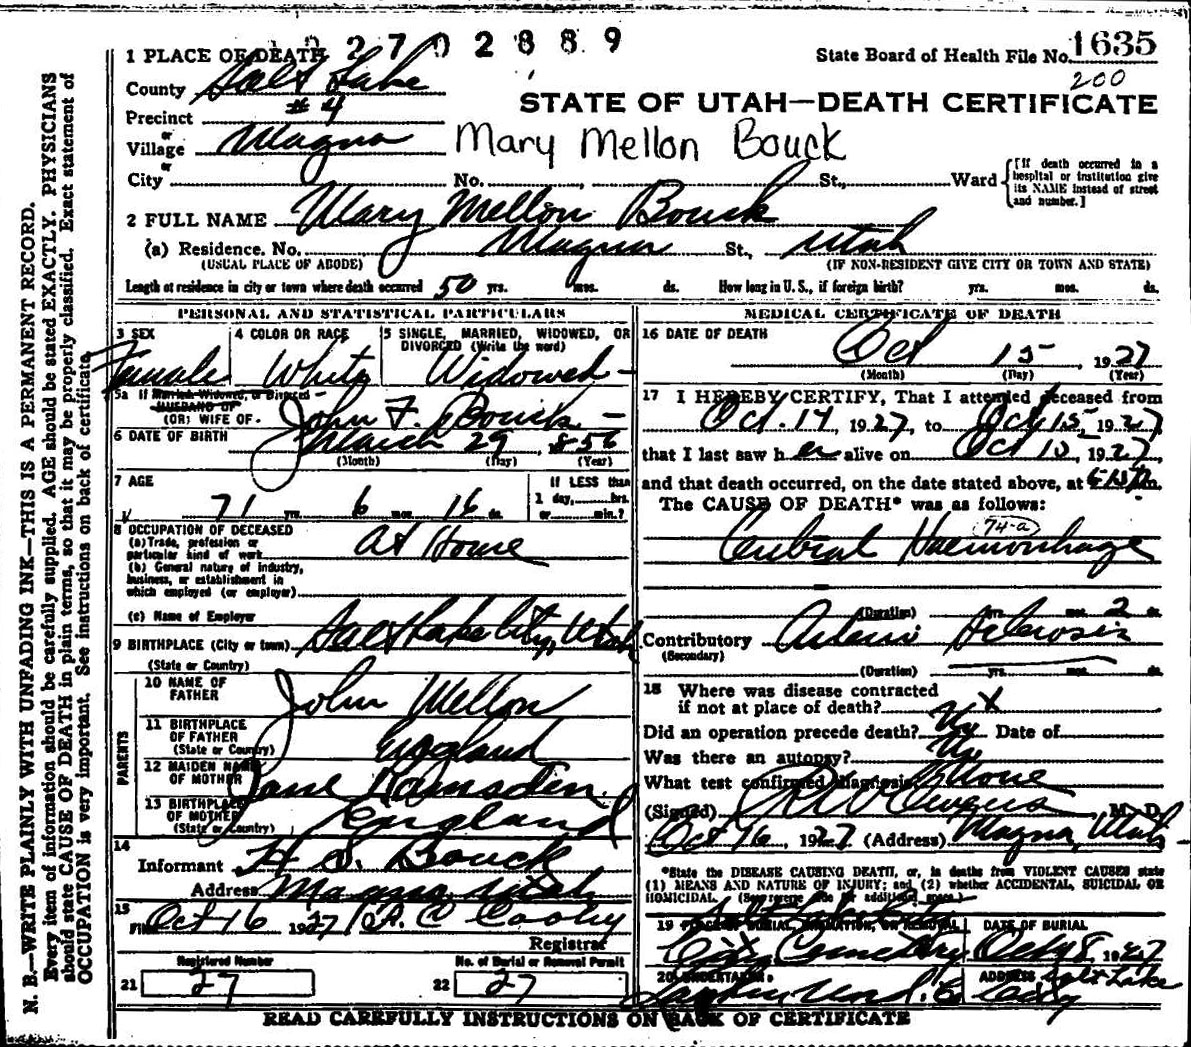 2702889
1 PLACE OF DEATH
State Board of Health File No. 1635
200
County Salt Lake
STATE OF UTAH—DEATH CERTIFICATE
Precinct #4
or
Village Magna
Mary Mellon Bouck
or
City No. , St., Ward
[If death occurred in a hospital or institution give its NAME instead of street and number.]
2 FULL NAME Mary Mellon Bouck
(a) Residence. No. Magna St., Utah
(USUAL PLACE OF ABODE) (IF NON-RESIDENT GIVE CITY OR TOWN AND STATE)
Length of residence in city or town where death occurred 50 yrs. mos. ds. How long in U. S., if foreign birth? yrs. mos. ds.
PERSONAL AND STATISTICAL PARTICULARS
3 SEX 4 COLOR OR RACE 5 SINGLE, MARRIED, WIDOWED, OR DIVORCED (Write the word)
Female White Widowed
5a If Married, Widowed, or Divorced
HUSBAND OF
(OR) WIFE OF John F. Bouck
6 DATE OF BIRTH March 29, 1856
(Month) (Day) (Year)
7 AGE If LESS than
1 day, hrs.
71 yrs. 6 mos. 16 ds. or min.?
8 OCCUPATION OF DECEASED
(a) Trade, profession or particular kind of work At Home
(b) General nature of industry,
business, or establishment in
which employed (or employer)
(c) Name of Employer
9 BIRTHPLACE (City or town) Salt Lake City, Utah
(State or Country)
PARENTS
10 NAME OF FATHER John Mellon
11 BIRTHPLACE OF FATHER (State or Country) England
12 MAIDEN NAME OF MOTHER Jane Ramsden
13 BIRTHPLACE OF MOTHER (State or Country) England
14
Informant H. S. Bouck
Address Magna Utah
15
Filed Oct 16 1927
Registrar
Registered Number No. of Burial or Removal Permit
21 27 22 27
MEDICAL CERTIFICATE OF DEATH
16 DATE OF DEATH
Oct 15 1927
(Month) (Day) (Year)
17 I HEREBY CERTIFY, That I attended deceased from
Oct. 14, 1927, to Oct 15, 1927,
that I last saw her alive on Oct 15, 1927,
and that death occurred, on the date stated above, at m.
The CAUSE OF DEATH* was as follows:
74-a
Cerebral Haemorrhage
(Duration) yrs. mos. 2 ds.
Contributory
(Secondary) (Duration) yrs. mos. ds.
18 Where was disease contracted
if not at place of death? X
Did an operation precede death? No Date of
Was there an autopsy? No
What test confirmed diagnosis None
(Signed) M. D.
Oct 16, 1927 (Address) Magna, Utah
*State the DISEASE CAUSING DEATH, or, in deaths from VIOLENT CAUSES state
(1) MEANS AND NATURE OF INJURY; and (2) whether ACCIDENTAL, SUICIDAL OR
HOMICIDAL. (See reverse side for additional space.)
19 PLACE OF BURIAL, CREMATION, OR REMOVAL DATE OF BURIAL
Salt Lake City
City Cemetery Oct 18, 1927
20 UNDERTAKER ADDRESS Salt Lake
City
READ CAREFULLY INSTRUCTIONS ON BACK OF CERTIFICATE
N. B.—WRITE PLAINLY WITH UNFADING INK—THIS IS A PERMANENT RECORD.
Every item of information should be carefully supplied. AGE should be stated EXACTLY. PHYSICIANS
should state CAUSE OF DEATH in plain terms, so that it may be properly classified. Exact statement of
OCCUPATION is very important. See instructions on back of certificate.